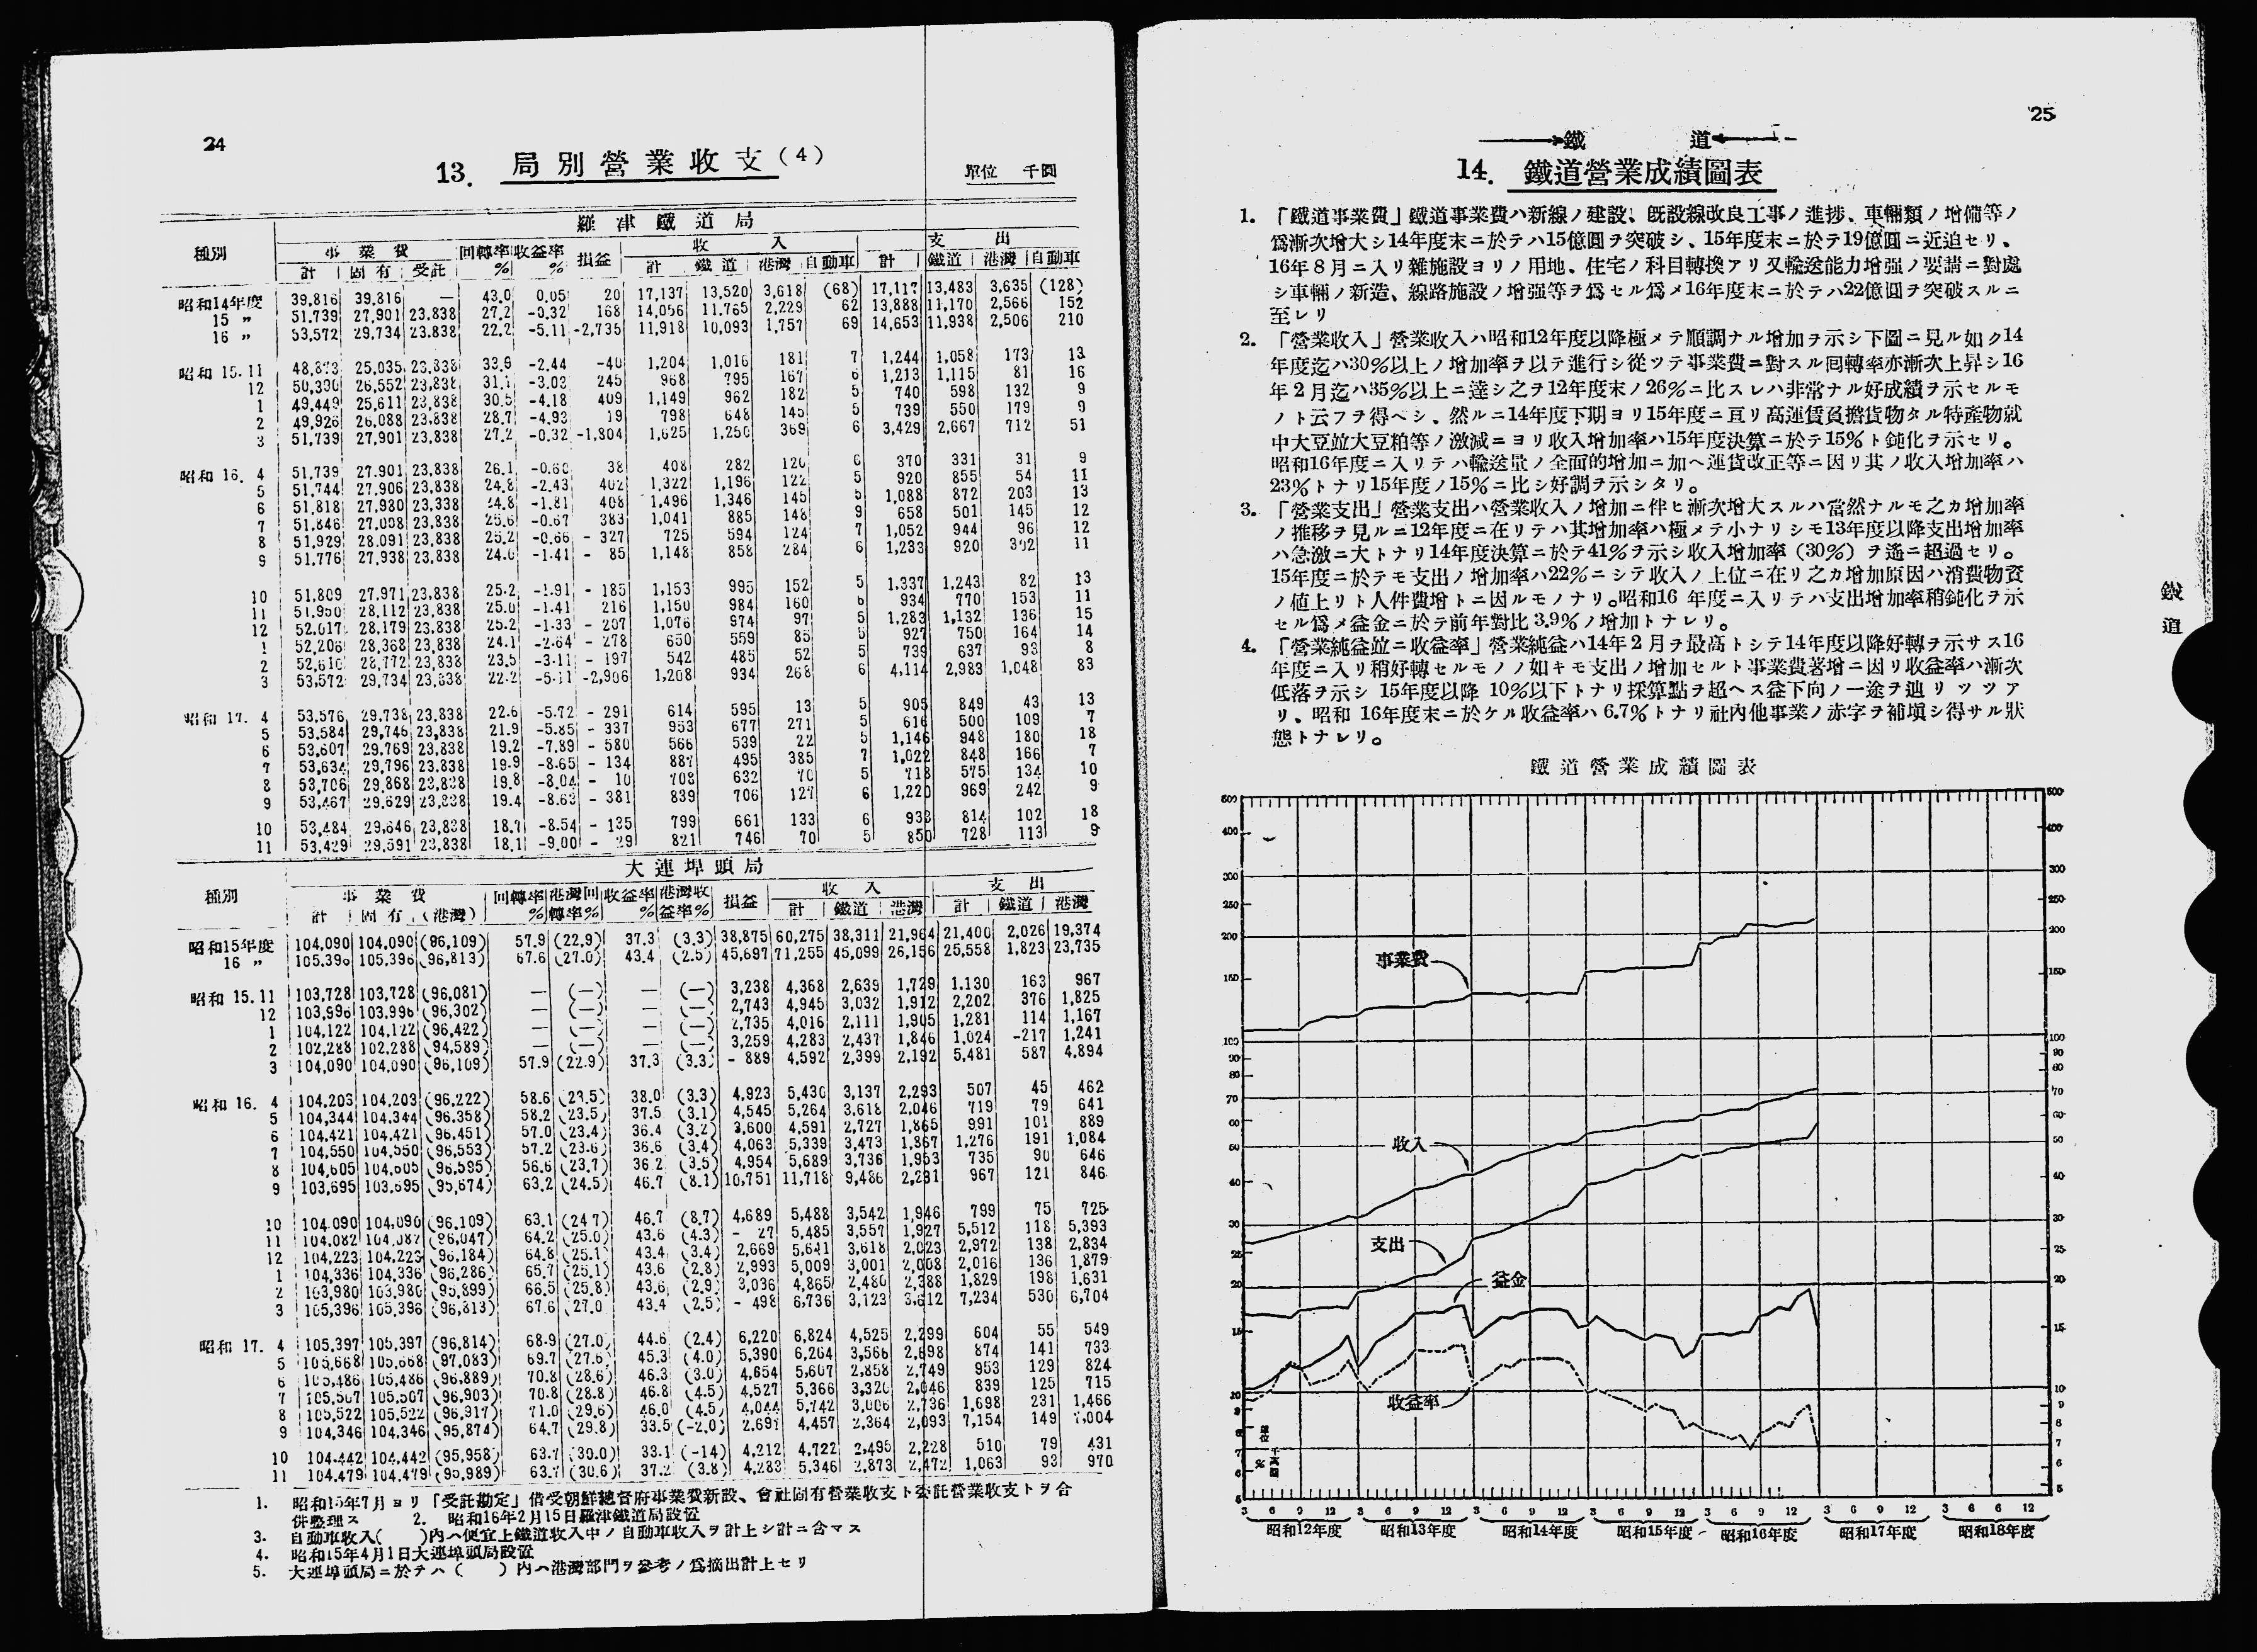 24
13. 局別營業收支(4)
單位 千圓
羅津鐵道局
種別 事業費 回轉率% 收益率% 損益 收入 支出
計 固有 受託 計 鐵道 港灣 自動車 計 鐵道 港灣 自動車
昭和14年度 39,816 39,816 — 43.0 0.05 20 17,137 13,520 3,618 (68) 17,117 13,483 3,635 (128)
15 〃 51,739 27,901 23,838 27.2 -0.32 168 14,056 11,765 2,229 62 13,888 11,170 2,566 152
16 〃 53,572 29,734 23,838 22.2 -5.11 -2,735 11,918 10,093 1,757 69 14,653 11,938 2,506 210
昭和 15.11 48,873 25,035 23,838 33.9 -2.44 -40 1,204 1,016 181 7 1,244 1,058 173 13
12 50,390 26,552 23,838 31.1 -3.03 245 968 795 167 6 1,213 1,115 81 16
1 49,449 25,611 23,838 30.5 -4.18 409 1,149 962 182 5 740 598 132 9
2 49,926 26,088 23,838 28.7 -4.93 19 798 648 145 5 739 550 179 9
3 51,739 27,901 23,838 27.2 -0.32 -1,804 1,625 1,250 369 6 3,429 2,667 712 51
昭和 16. 4 51,739 27,901 23,838 26.1 -0.60 38 408 282 120 6 370 331 31 9
5 51,744 27,906 23,838 24.8 -2.43 402 1,322 1,196 122 5 920 855 54 11
6 51,818 27,980 23,838 24.8 -1.81 408 1,496 1,346 145 5 1,088 872 203 13
7 51,846 27,008 23,838 25.6 -0.67 383 1,041 885 148 9 658 501 145 12
8 51,929 28,091 23,838 25.2 -0.66 - 327 725 594 124 7 1,052 944 96 12
9 51,776 27,938 23,838 24.0 -1.41 - 85 1,148 858 284 6 1,233 920 302 11
10 51,809 27,971 23,838 25.2 -1.91 - 185 1,153 995 152 5 1,337 1,243 82 13
11 51,950 28,112 23,838 25.0 -1.41 216 1,150 984 160 6 934 770 153 11
12 52,017 28,179 23,838 25.2 -1.33 - 207 1,076 974 97 5 1,283 1,132 136 15
1 52,206 28,368 23,838 24.1 -2.64 - 278 650 559 85 5 927 750 164 14
2 52,610 28,772 23,838 23.5 -3.11 - 197 542 485 52 5 739 637 93 8
3 53,572 29,734 23,838 22.2 -5.11 -2,906 1,208 934 268 6 4,114 2,983 1,048 83
昭和 17. 4 53,576 29,738 23,838 22.6 -5.72 - 291 614 595 13 5 905 849 43 13
5 53,584 29,746 23,838 21.9 -5.85 - 337 953 677 271 5 616 500 109 7
6 53,607 29,769 23,838 19.2 -7.89 - 580 566 539 22 5 1,146 948 180 18
7 53,634 29,796 23,838 19.9 -8.65 - 134 887 495 385 7 1,022 848 166 7
8 53,706 29,868 23,838 19.8 -8.04 - 10 708 632 70 5 718 575 134 10
9 53,467 29,629 23,838 19.4 -8.63 - 381 839 706 127 6 1,220 969 242 9
10 53,484 29,646 23,838 18.7 -8.54 - 135 799 661 133 6 933 814 102 18
11 53,429 29,591 23,838 18.1 -9.00 - 29 821 746 70 5 850 728 113 9
大連埠頭局
種別 事業費 回轉率% 港灣回轉率% 收益率% 港灣收益率% 損益 收入 支出
計 固有 (港灣) 計 鐵道 港灣 計 鐵道 港灣
昭和15年度 104,090 104,090 (96,109) 57.9 (22.9) 37.3 (3.3) 38,875 60,275 38,311 21,964 21,400 2,026 19,374
16 〃 105,396 105,396 (96,813) 67.6 (27.0) 43.4 (2.5) 45,697 71,255 45,099 26,156 25,558 1,823 23,735
昭和 15.11 103,728 103,728 (96,081) — (—) — (—) 3,238 4,368 2,639 1,729 1,130 163 967
12 103,996 103,996 (96,302) — (—) — (—) 2,743 4,945 3,032 1,912 2,202 376 1,825
1 104,122 104,122 (96,422) — (—) — (—) 2,735 4,016 2,111 1,905 1,281 114 1,167
2 102,288 102,288 (94,589) — (—) — (—) 3,259 4,283 2,437 1,846 1,024 -217 1,241
3 104,090 104,090 (96,109) 57.9 (22.9) 37.3 (3.3) - 889 4,592 2,399 2,192 5,481 587 4,894
昭和 16. 4 104,203 104,203 (96,222) 58.6 (23.5) 38.0 (3.3) 4,923 5,430 3,137 2,293 507 45 462
5 104,344 104,344 (96,358) 58.2 (23.5) 37.5 (3.1) 4,545 5,264 3,618 2,046 719 79 641
6 104,421 104,421 (96,451) 57.0 (23.4) 36.4 (3.2) 3,600 4,591 2,727 1,865 991 101 889
7 104,550 104,550 (96,553) 57.2 (23.6) 36.6 (3.4) 4,063 5,339 3,473 1,867 1,276 191 1,084
8 104,605 104,605 (96,595) 56.6 (23.7) 36.2 (3.5) 4,954 5,689 3,736 1,953 735 90 646
9 103,695 103,695 (95,674) 63.2 (24.5) 46.7 (8.1) 10,751 11,718 9,486 2,231 967 121 846
10 104,090 104,090 (96,109) 63.1 (24.7) 46.7 (8.7) 4,689 5,488 3,542 1,946 799 75 725
11 104,082 104,082 (96,047) 64.2 (25.0) 43.6 (4.3) - 27 5,485 3,557 1,927 5,512 118 5,393
12 104,223 104,223 (96,184) 64.8 (25.1) 43.4 (3.4) 2,669 5,641 3,618 2,023 2,972 138 2,834
1 104,336 104,336 (96,286) 65.7 (25.1) 43.6 (2.8) 2,993 5,009 3,001 2,008 2,016 136 1,879
2 103,980 103,980 (95,899) 66.5 (25.8) 43.6 (2.9) 3,036 4,865 2,480 2,388 1,829 198 1,631
3 105,396 105,396 (96,813) 67.6 (27.0 43.4 (2.5) - 498 6,736 3,123 3,612 7,234 530 6,704
昭和 17. 4 105,397 105,397 (96,814) 68.9 (27.0) 44.6 (2.4) 6,220 6,824 4,525 2,299 604 55 549
5 105,668 105,668 (97,083) 69.7 (27.6) 45.3 (4.0) 5,390 6,264 3,566 2,698 874 141 733
6 105,486 105,486 (96,889) 70.8 (28.6) 46.3 (3.0) 4,654 5,607 2,858 2,749 953 129 824
7 105,507 105,507 (96,903) 70.8 (28.8) 46.8 (4.5) 4,527 5,366 3,320 2,046 839 125 715
8 105,522 105,522 (96,917) 71.0 (29.6) 46.0 (4.5) 4,044 5,742 3,006 2,736 1,698 231 1,466
9 104,346 104,346 (95,874) 64.7 (29.8) 33.5 (-2.0) 2,697 4,457 2,364 2,093 7,154 149 7,004
10 104,442 104,442 (95,958) 63.7 (30.0) 33.1 (-14) 4,212 4,722 2,495 2,228 510 79 431
11 104,479 104,479 (95,989) 63.7 (30.6) 37.2 (3.8) 4,283 5,346 2,873 2,472 1,063 93 970
1. 昭和15年7月ヨリ「受託勘定」借受朝鮮總督府事業費新設、會社固有營業收支ト委託營業收支トヲ合
併整理ス 2. 昭和16年2月15日羅津鐵道局設置
3. 自動車收入( )內ハ便宜上鐵道收入中ノ自動車收入ヲ計上シ計ニ含マス
4. 昭和15年4月1日大連埠頭局設置
5. 大連埠頭局ニ於テハ( )內ハ港灣部門ヲ參考ノ爲摘出計上セリ
25
鐵道
14. 鐵道營業成績圖表
1. 「鐵道事業費」鐵道事業費ハ新線ノ建設、旣設線改良工事ノ進捗、車輛類ノ增備等ノ
爲漸次增大シ14年度末ニ於テハ15億圓ヲ突破シ、15年度末ニ於テ19億圓ニ近迫セリ、
16年8月ニ入リ雜施設ヨリノ用地、住宅ノ科目轉換アリ又輸送能力增强ノ要請ニ對處
シ車輛ノ新造、線路施設ノ增强等ヲ爲セル爲メ16年度末ニ於テハ22億圓ヲ突破スルニ
至レリ
2. 「營業收入」營業收入ハ昭和12年度以降極メテ順調ナル增加ヲ示シ下圖ニ見ル如ク14
年度迄ハ30%以上ノ增加率ヲ以テ進行シ從ツテ事業費ニ對スル回轉率亦漸次上昇シ16
年2月迄ハ35%以上ニ達シ之ヲ12年度末ノ26%ニ比スレハ非常ナル好成績ヲ示セルモ
ノト云フヲ得ヘシ、然ルニ14年度下期ヨリ15年度ニ亘リ高運賃負擔貨物タル特產物就
中大豆竝大豆粕等ノ激減ニヨリ收入增加率ハ15年度決算ニ於テ15%ト鈍化ヲ示セリ。
昭和16年度ニ入リテハ輸送量ノ全面的增加ニ加ヘ運賃改正等ニ因リ其ノ收入增加率ハ
23%トナリ15年度ノ15%ニ比シ好調ヲ示シタリ。
3. 「營業支出」營業支出ハ營業收入ノ增加ニ伴ヒ漸次增大スルハ當然ナルモ之カ增加率
ノ推移ヲ見ルニ12年度ニ在リテハ其增加率ハ極メテ小ナリシモ13年度以降支出增加率
ハ急激ニ大トナリ14年度決算ニ於テ41%ヲ示シ收入增加率(30%)ヲ遙ニ超過セリ。
15年度ニ於テモ支出ノ增加率ハ22%ニシテ收入ノ上位ニ在リ之カ增加原因ハ消費物資
ノ値上リト人件費增トニ因ルモノナリ。昭和16年度ニ入リテハ支出增加率稍鈍化ヲ示
セル爲メ益金ニ於テ前年對比3.9%ノ增加トナレリ。
4. 「營業純益竝ニ收益率」營業純益ハ14年2月ヲ最高トシテ14年度以降好轉ヲ示サス16
年度ニ入リ稍好轉セルモノノ如キモ支出ノ增加セルト事業費著增ニ因リ收益率ハ漸次
低落ヲ示シ 15年度以降 10%以下トナリ採算點ヲ超ヘス益下向ノ一途ヲ辿リツツア
リ、昭和16年度末ニ於ケル收益率ハ6.7%トナリ社內他事業ノ赤字ヲ補塡シ得サル狀
態トナレリ。
鐵道
鐵道營業成績圖表
500 500
400 400
300 300
250 250
200 200
事業費
150 150
100 100
90 90
80 80
70 70
60 60
收入
50 50
40 40
30 30
支出
25 25
益金
20 20
15 15
收益率
10 10
9 9
8 8
7 7
6 6
5 5
單位 千萬圓 %
3 6 9 12 3 6 9 12 3 6 9 12 3 6 9 12 3 6 9 12 3 6 9 12 3 6 6 12
昭和12年度 昭和13年度 昭和14年度 昭和15年度 昭和16年度 昭和17年度 昭和18年度